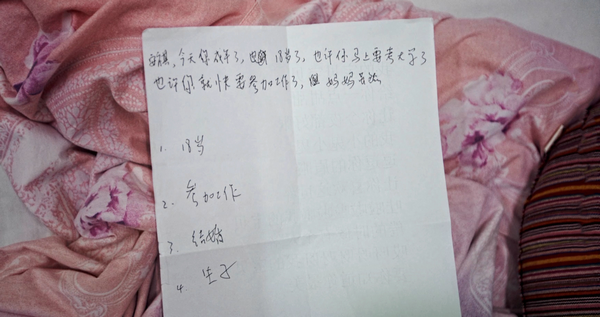 今天你成年了，18岁了，也许你马上要考大学了
也许你就快要参加工作了，但妈妈无法
1. 18岁
2. 参加工作
3. 结婚
4. 生子